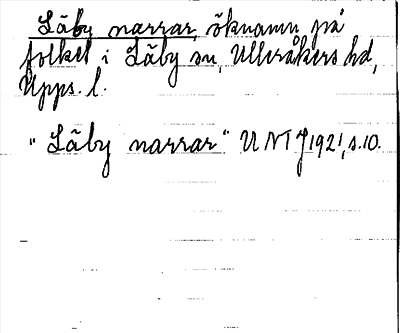 Läby narrar, öknamn på
folket i Läby sn, Ulleråkers hd,
Upps. l.
"Läby narrar" UNT J 1921, s. 10.